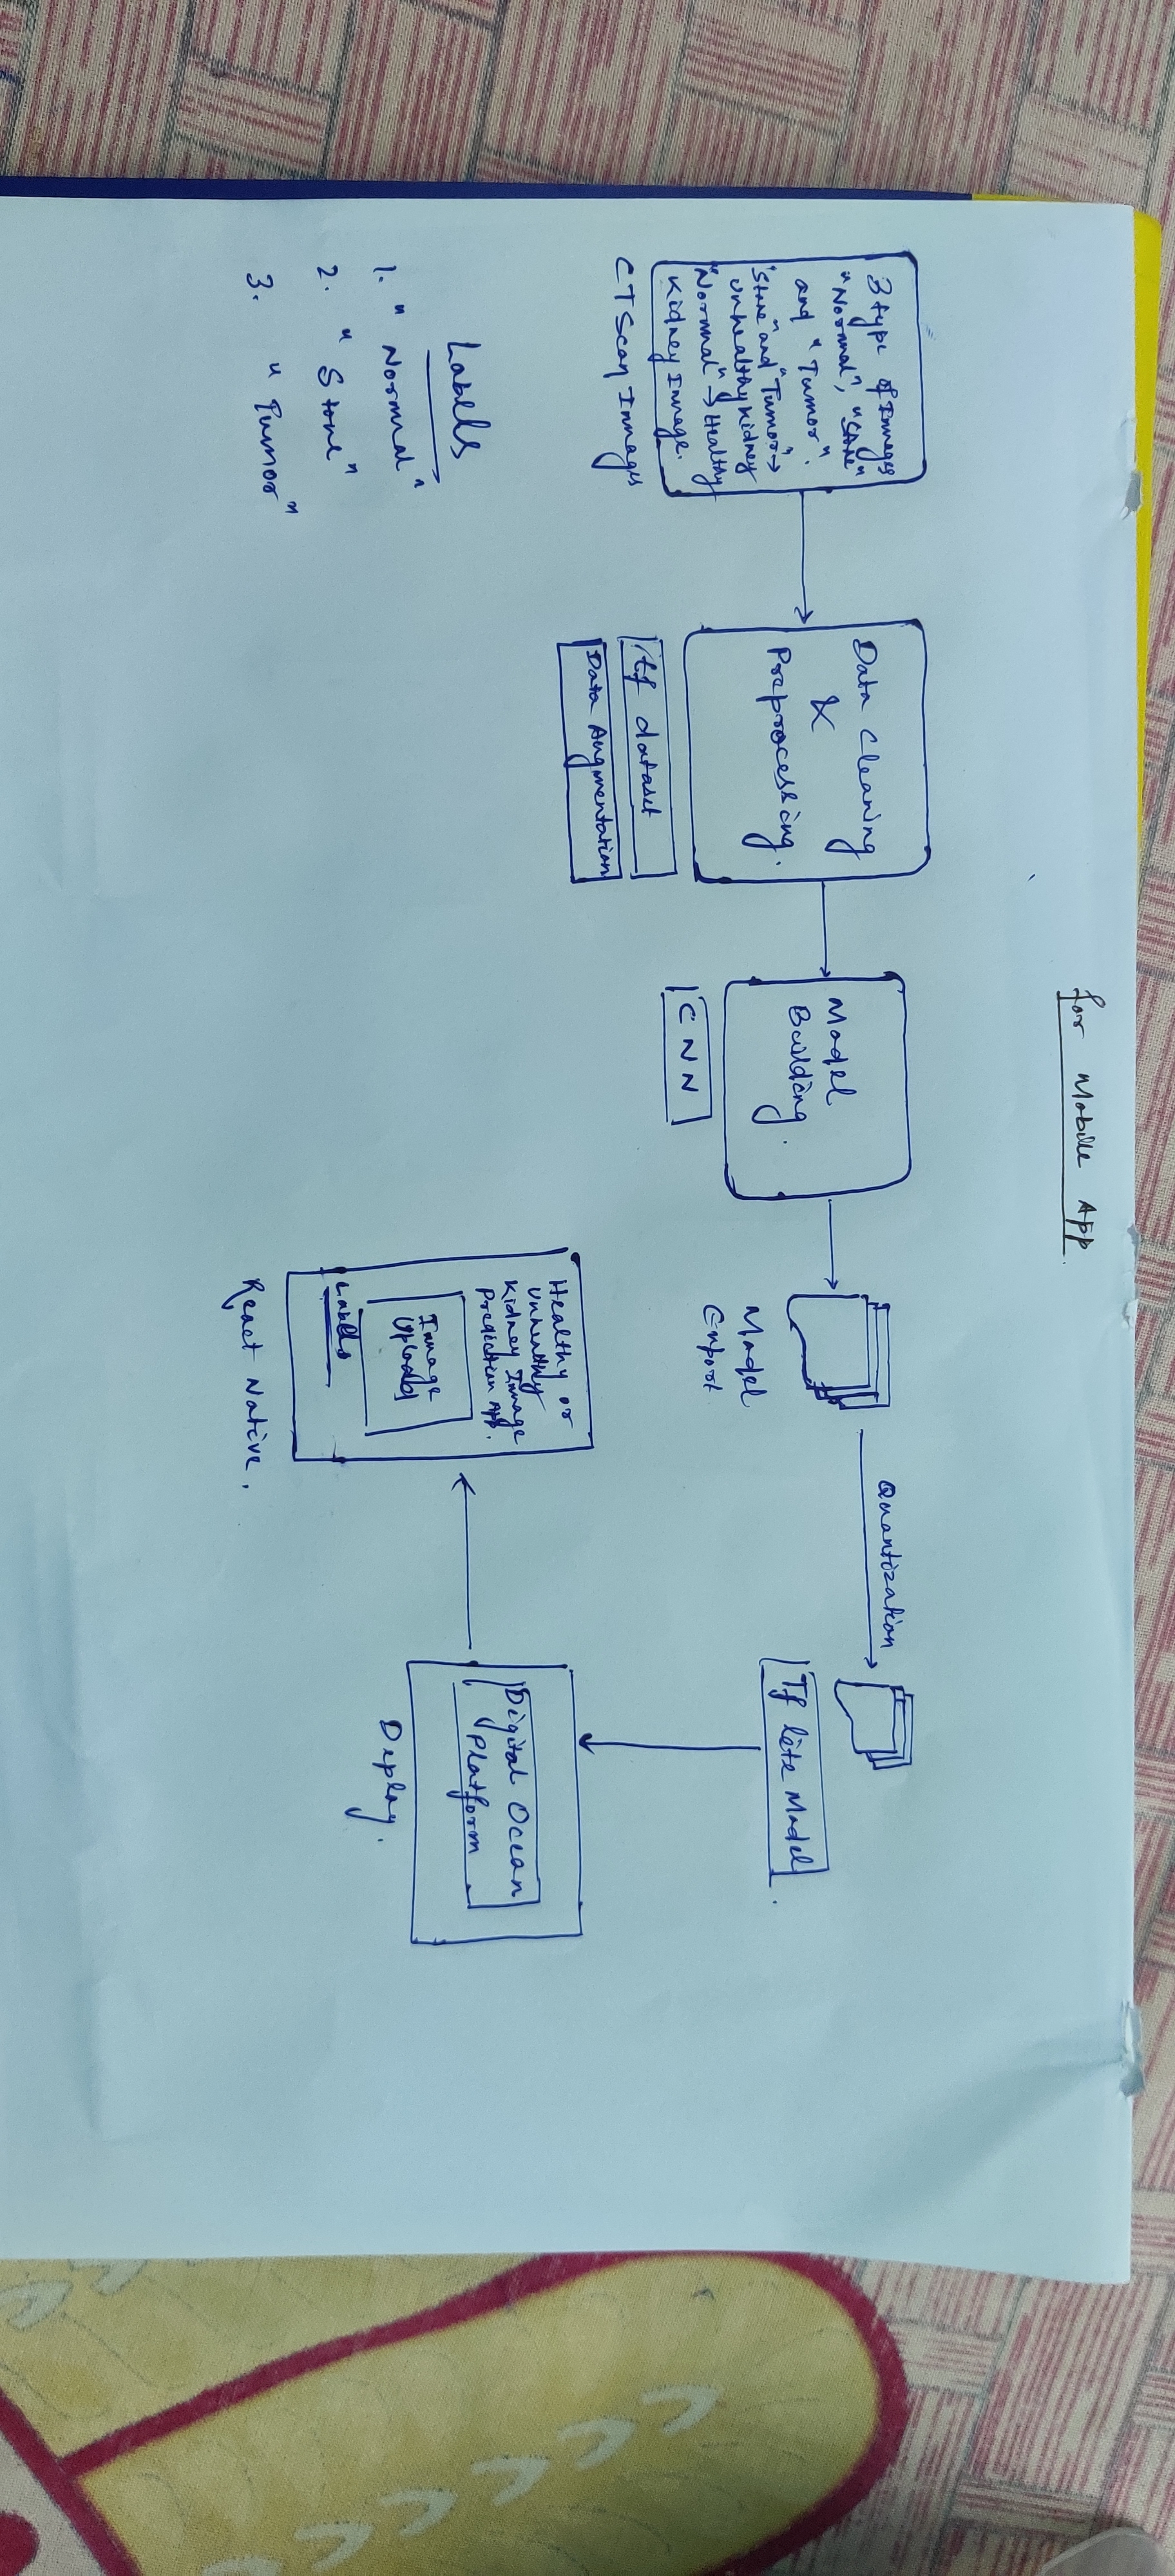 for Mobile App.
3 type of Images
"Normal", "Stone"
and "Tumor".
"Stone" and "Tumor" →
Unhealthy Kidney
"Normal" → Healthy
Kidney Image.
CT Scan Images
Data Cleaning
&
Preprocessing.
tf dataset
Data Augmentation
Model
Building.
CNN
Model
Export
Quantization
Tf lite Model
Digital Ocean
Platform
Deploy.
Healthy or
Unhealthy
Kidney Image
Prediction App.
Image
Upload
Labels
React Native.
Labels
1. "Normal"
2. "Stone"
3. "Tumor"